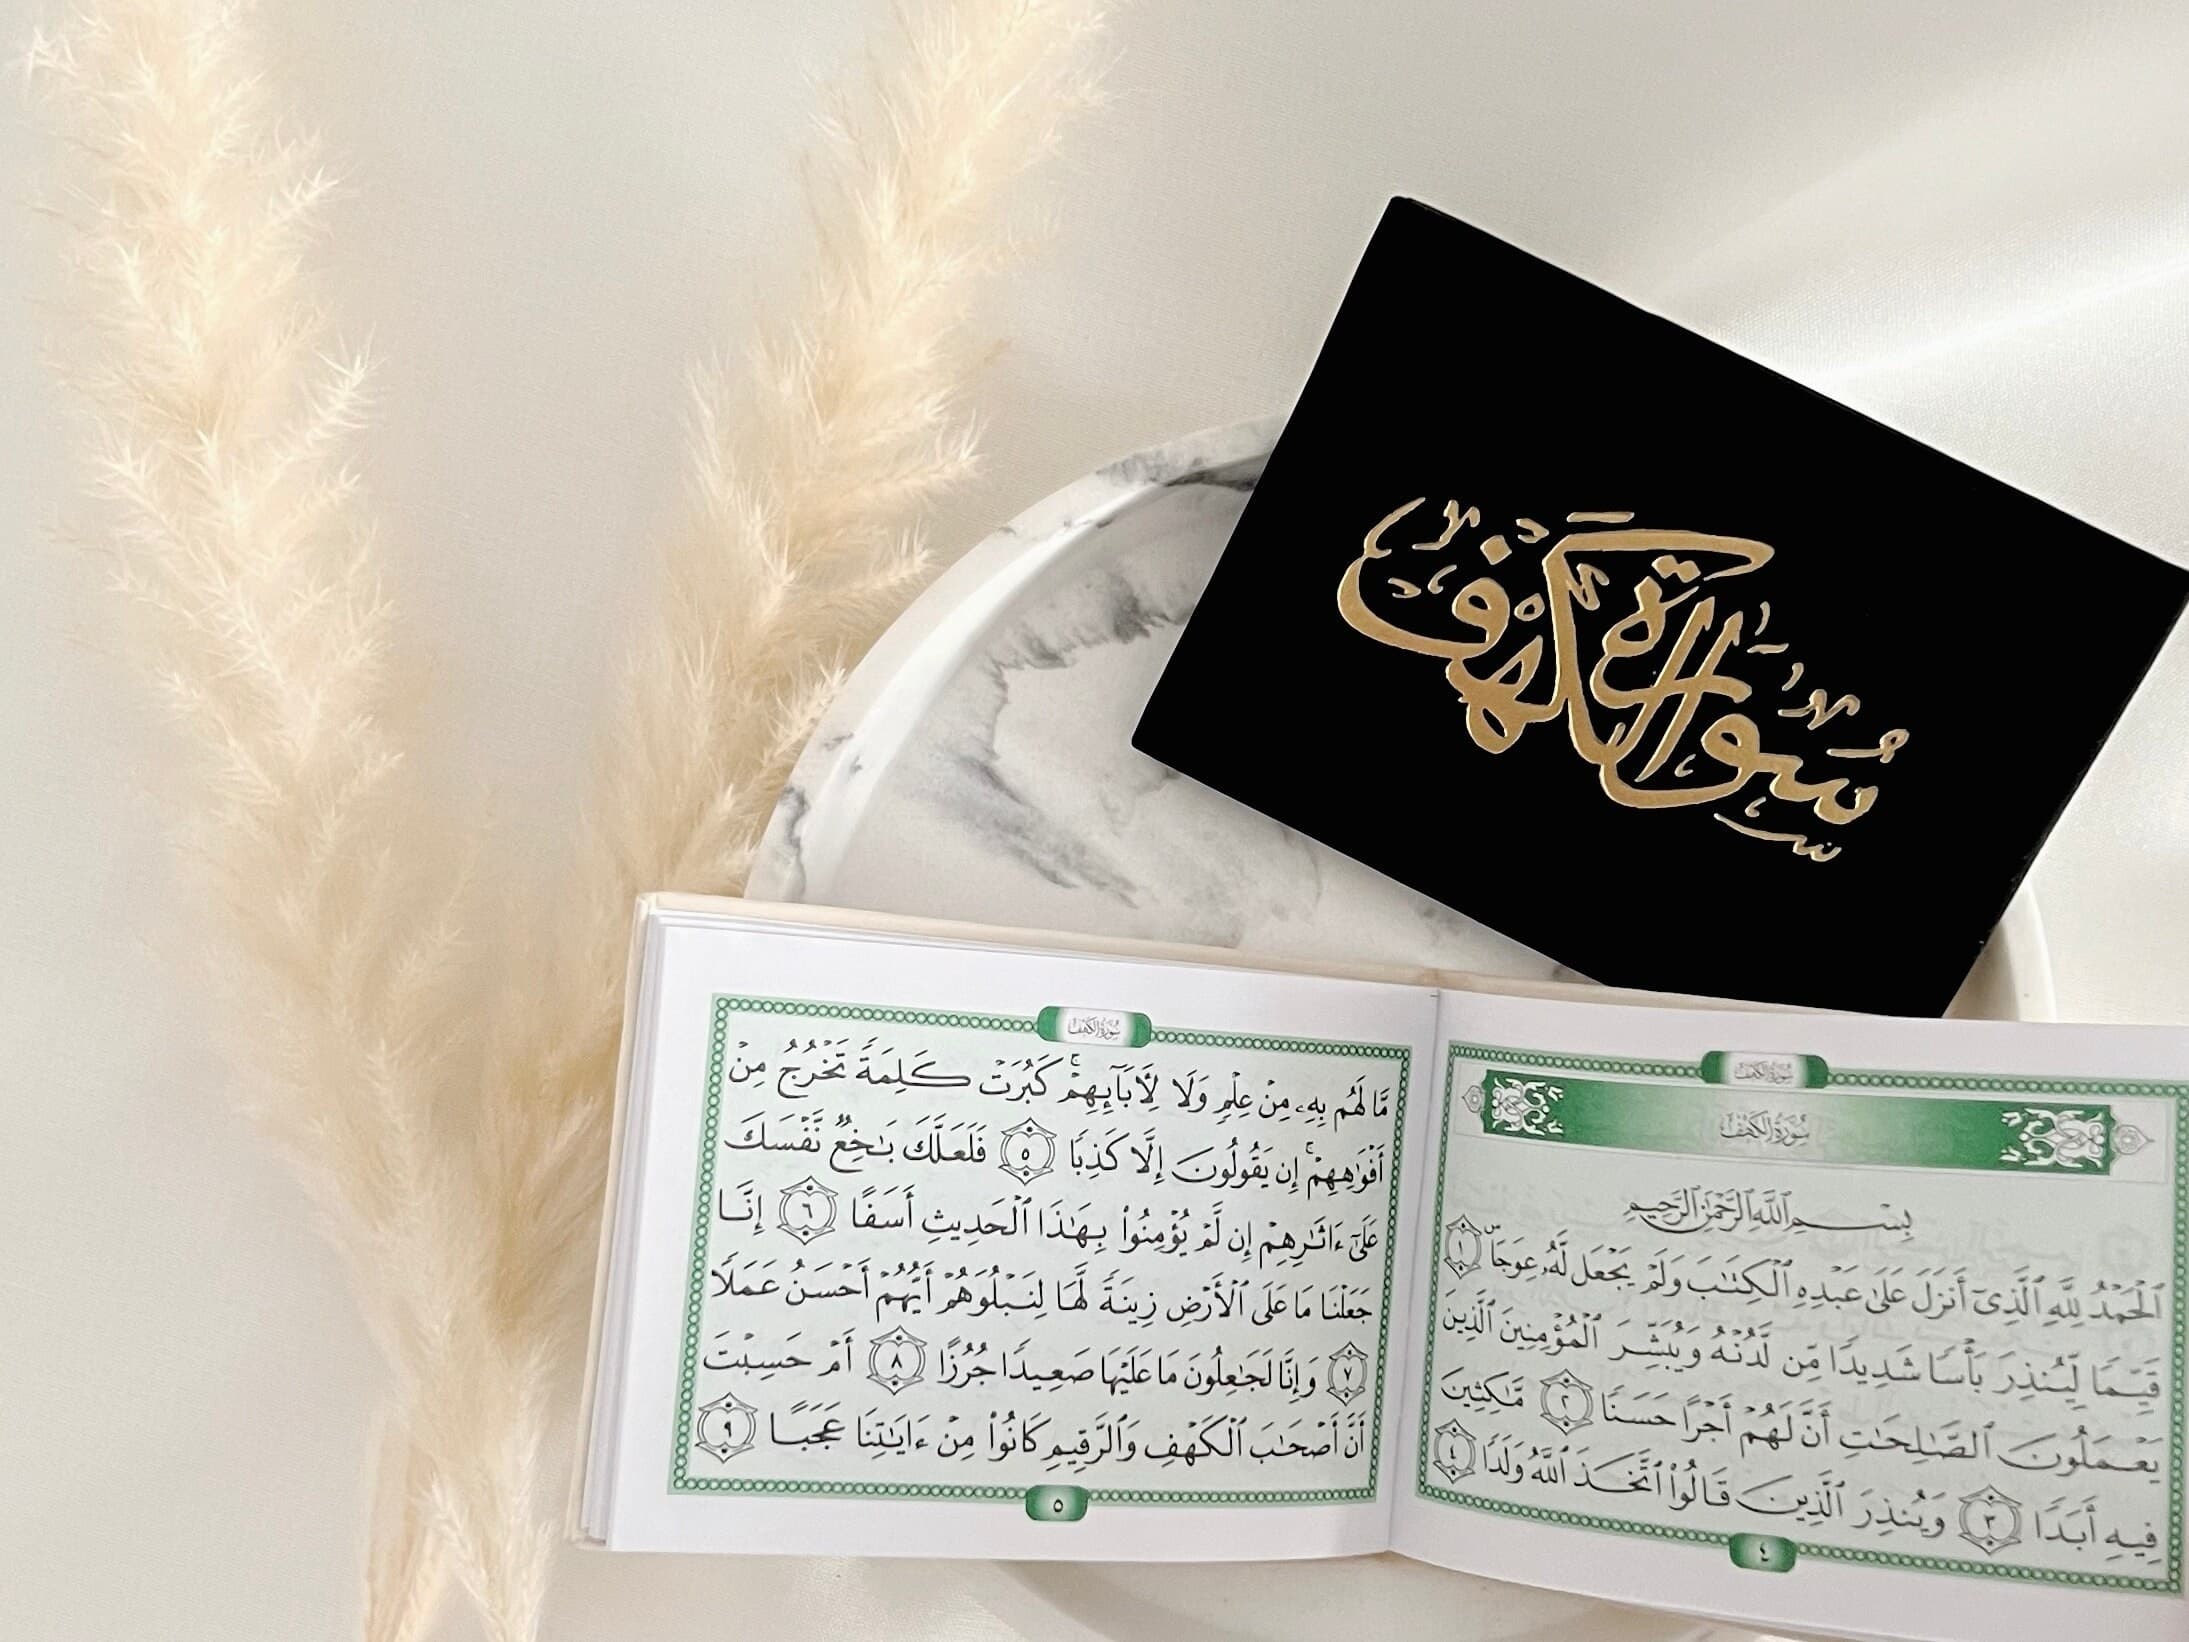 سُورَةُ الْكَهْفِ
سُورَةُ الكَهۡفِ
سُورَةُ الكَهۡفِ
بِسۡمِ ٱللَّهِ ٱلرَّحۡمَٰنِ ٱلرَّحِيمِ
ٱلۡحَمۡدُ لِلَّهِ ٱلَّذِيٓ أَنزَلَ عَلَىٰ عَبۡدِهِ ٱلۡكِتَٰبَ وَلَمۡ يَجۡعَل لَّهُۥ عِوَجَاۜ ١
قَيِّمٗا لِّيُنذِرَ بَأۡسٗا شَدِيدٗا مِّن لَّدُنۡهُ وَيُبَشِّرَ ٱلۡمُؤۡمِنِينَ ٱلَّذِينَ
يَعۡمَلُونَ ٱلصَّٰلِحَٰتِ أَنَّ لَهُمۡ أَجۡرًا حَسَنٗا ٢ مَّٰكِثِينَ
فِيهِ أَبَدٗا ٣ وَيُنذِرَ ٱلَّذِينَ قَالُواْ ٱتَّخَذَ ٱللَّهُ وَلَدٗا ٤
٤
سُورَةُ الكَهۡفِ
مَّا لَهُم بِهِۦ مِنۡ عِلۡمٖ وَلَا لِأٓبَآئِهِمۡۚ كَبُرَتۡ كَلِمَةٗ تَخۡرُجُ مِنۡ
أَفۡوَٰهِهِمۡۚ إِن يَقُولُونَ إِلَّا كَذِبٗا ٥ فَلَعَلَّكَ بَٰخِعٞ نَّفۡسَكَ
عَلَىٰٓ ءَاثَٰرِهِمۡ إِن لَّمۡ يُؤۡمِنُواْ بِهَٰذَا ٱلۡحَدِيثِ أَسَفًا ٦ إِنَّا
جَعَلۡنَا مَا عَلَى ٱلۡأَرۡضِ زِينَةٗ لَّهَا لِنَبۡلُوَهُمۡ أَيُّهُمۡ أَحۡسَنُ عَمَلٗا
٧ وَإِنَّا لَجَٰعِلُونَ مَا عَلَيۡهَا صَعِيدٗا جُرُزًا ٨ أَمۡ حَسِبۡتَ
أَنَّ أَصۡحَٰبَ ٱلۡكَهۡفِ وَٱلرَّقِيمِ كَانُواْ مِنۡ ءَايَٰتِنَا عَجَبًا ٩
٥